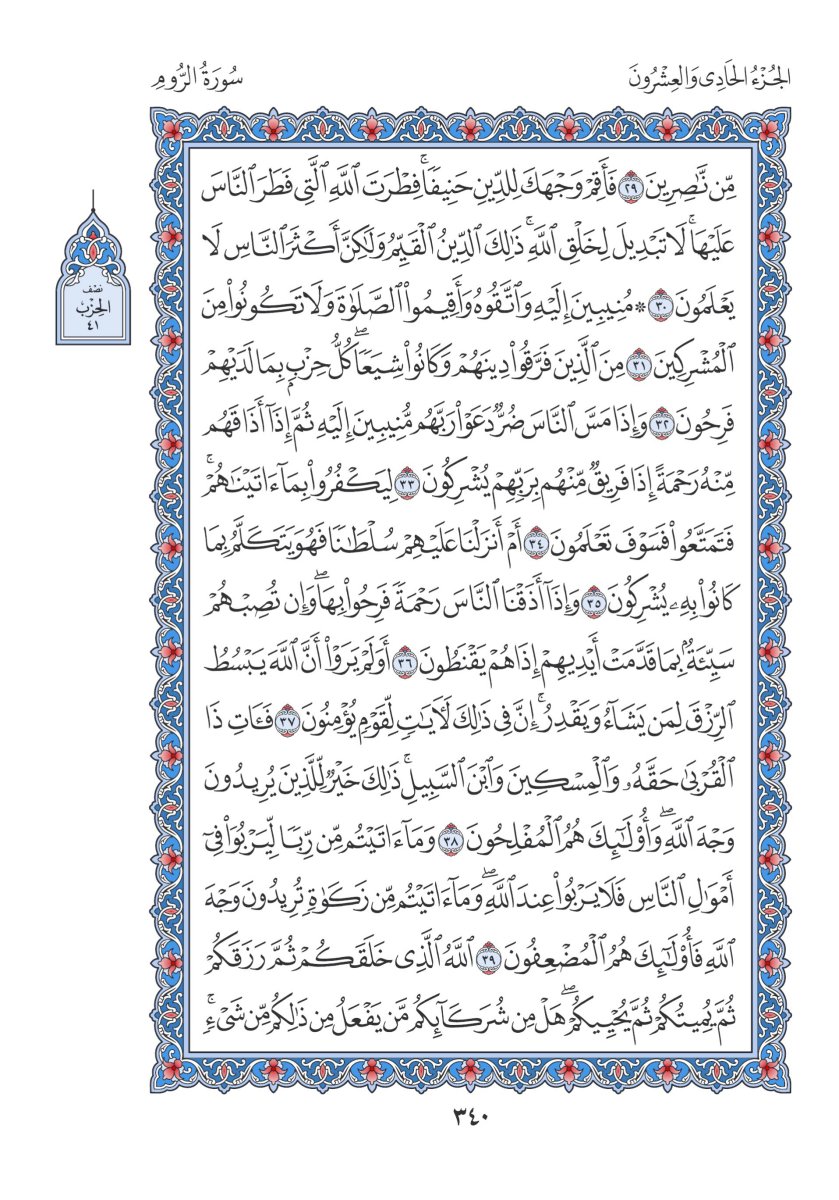 الجُزْءُ الحَادِى وَالعِشْرُونَ
سُورَةُ الرُّومِ
مِّن نَّٰصِرِينَ ٢٩ فَأَقِمْ وَجْهَكَ لِلدِّينِ حَنِيفًاۚ فِطْرَتَ ٱللَّهِ ٱلَّتِى فَطَرَ ٱلنَّاسَ
عَلَيْهَاۚ لَا تَبْدِيلَ لِخَلْقِ ٱللَّهِۚ ذَٰلِكَ ٱلدِّينُ ٱلْقَيِّمُ وَلَٰكِنَّ أَكْثَرَ ٱلنَّاسِ لَا
يَعْلَمُونَ ٣٠ * مُنِيبِينَ إِلَيْهِ وَٱتَّقُوهُ وَأَقِيمُوا۟ ٱلصَّلَوٰةَ وَلَا تَكُونُوا۟ مِنَ
ٱلْمُشْرِكِينَ ٣١ مِنَ ٱلَّذِينَ فَرَّقُوا۟ دِينَهُمْ وَكَانُوا۟ شِيَعًاۖ كُلُّ حِزْبٍۭ بِمَا لَدَيْهِمْ
فَرِحُونَ ٣٢ وَإِذَا مَسَّ ٱلنَّاسَ ضُرٌّ دَعَوْا۟ رَبَّهُم مُّنِيبِينَ إِلَيْهِ ثُمَّ إِذَآ أَذَاقَهُم
مِّنْهُ رَحْمَةً إِذَا فَرِيقٌ مِّنْهُم بِرَبِّهِمْ يُشْرِكُونَ ٣٣ لِيَكْفُرُوا۟ بِمَآ ءَاتَيْنَٰهُمْۚ
فَتَمَتَّعُوا۟ فَسَوْفَ تَعْلَمُونَ ٣٤ أَمْ أَنزَلْنَا عَلَيْهِمْ سُلْطَٰنًا فَهُوَ يَتَكَلَّمُ بِمَا
كَانُوا۟ بِهِۦ يُشْرِكُونَ ٣٥ وَإِذَآ أَذَقْنَا ٱلنَّاسَ رَحْمَةً فَرِحُوا۟ بِهَاۖ وَإِن تُصِبْهُمْ
سَيِّئَةٌۢ بِمَا قَدَّمَتْ أَيْدِيهِمْ إِذَا هُمْ يَقْنَطُونَ ٣٦ أَوَلَمْ يَرَوْا۟ أَنَّ ٱللَّهَ يَبْسُطُ
ٱلرِّزْقَ لِمَن يَشَآءُ وَيَقْدِرُۚ إِنَّ فِى ذَٰلِكَ لَءَايَٰتٍ لِّقَوْمٍ يُؤْمِنُونَ ٣٧ فَـَٔاتِ ذَا
ٱلْقُرْبَىٰ حَقَّهُۥ وَٱلْمِسْكِينَ وَٱبْنَ ٱلسَّبِيلِۚ ذَٰلِكَ خَيْرٌ لِّلَّذِينَ يُرِيدُونَ
وَجْهَ ٱللَّهِۖ وَأُو۟لَٰٓئِكَ هُمُ ٱلْمُفْلِحُونَ ٣٨ وَمَآ ءَاتَيْتُم مِّن رِّبًا لِّيَرْبُوَا۟ فِىٓ
أَمْوَٰلِ ٱلنَّاسِ فَلَا يَرْبُوا۟ عِندَ ٱللَّهِۖ وَمَآ ءَاتَيْتُم مِّن زَكَوٰةٍ تُرِيدُونَ وَجْهَ
ٱللَّهِ فَأُو۟لَٰٓئِكَ هُمُ ٱلْمُضْعِفُونَ ٣٩ ٱللَّهُ ٱلَّذِى خَلَقَكُمْ ثُمَّ رَزَقَكُمْ
ثُمَّ يُمِيتُكُمْ ثُمَّ يُحْيِيكُمْۖ هَلْ مِن شُرَكَآئِكُم مَّن يَفْعَلُ مِن ذَٰلِكُم مِّن شَىْءٍۚ
نصْف
الحِزْبْ
٤١
٣٤٠